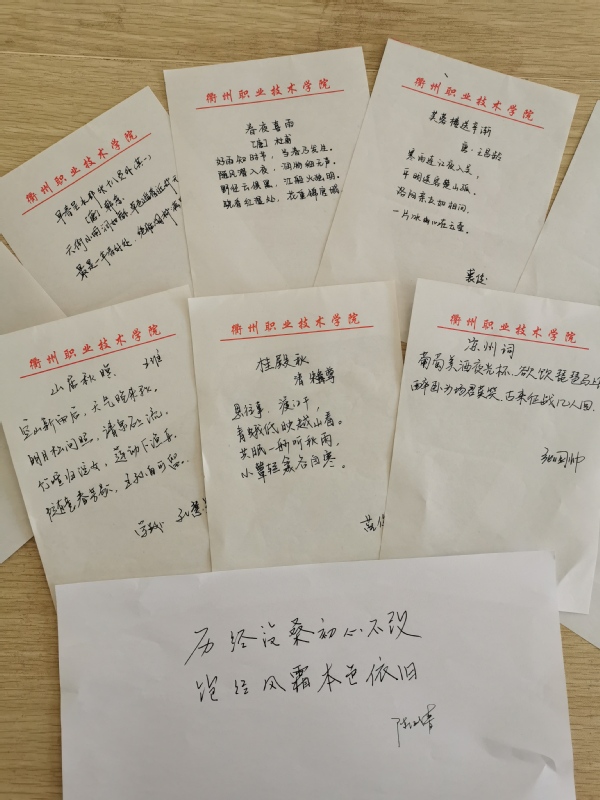 衢州职业技术学院
早春呈水部张十八员外(其一)
(唐) 韩愈
天街小雨润如酥 草色遥看近却
最是一年春好处, 绝胜烟柳
衢州职业技术学院
春夜喜雨
[唐] 杜甫
好雨知时节，当春乃发生。
随风潜入夜，润物细无声。
野径云俱黑，江船火独明。
晓看红湿处，花重锦官城。
衢州职业技术学院
芙蓉楼送辛渐
唐·王昌龄
寒雨连江夜入吴，
平明送客楚山孤。
洛阳亲友如相问，
一片冰心在玉壶。
衢州职业技术学院
山居秋暝 王维
空山新雨后，天气晚来秋。
明月松间照，清泉石上流。
竹喧归浣女，莲动下渔舟。
随意春芳歇，王孙自可留。
衢州职业技术学院
桂殿秋
清 朱彝尊
思往事，渡江干，
青蛾低映越山看。
共眠一舸听秋雨，
小簟轻衾各自寒。
衢州职业技术学院
凉州词
葡萄美酒夜光杯，欲饮琵琶马上
醉卧沙场君莫笑，古来征战几人回
历经沧桑初心不改
饱经风霜本色依旧